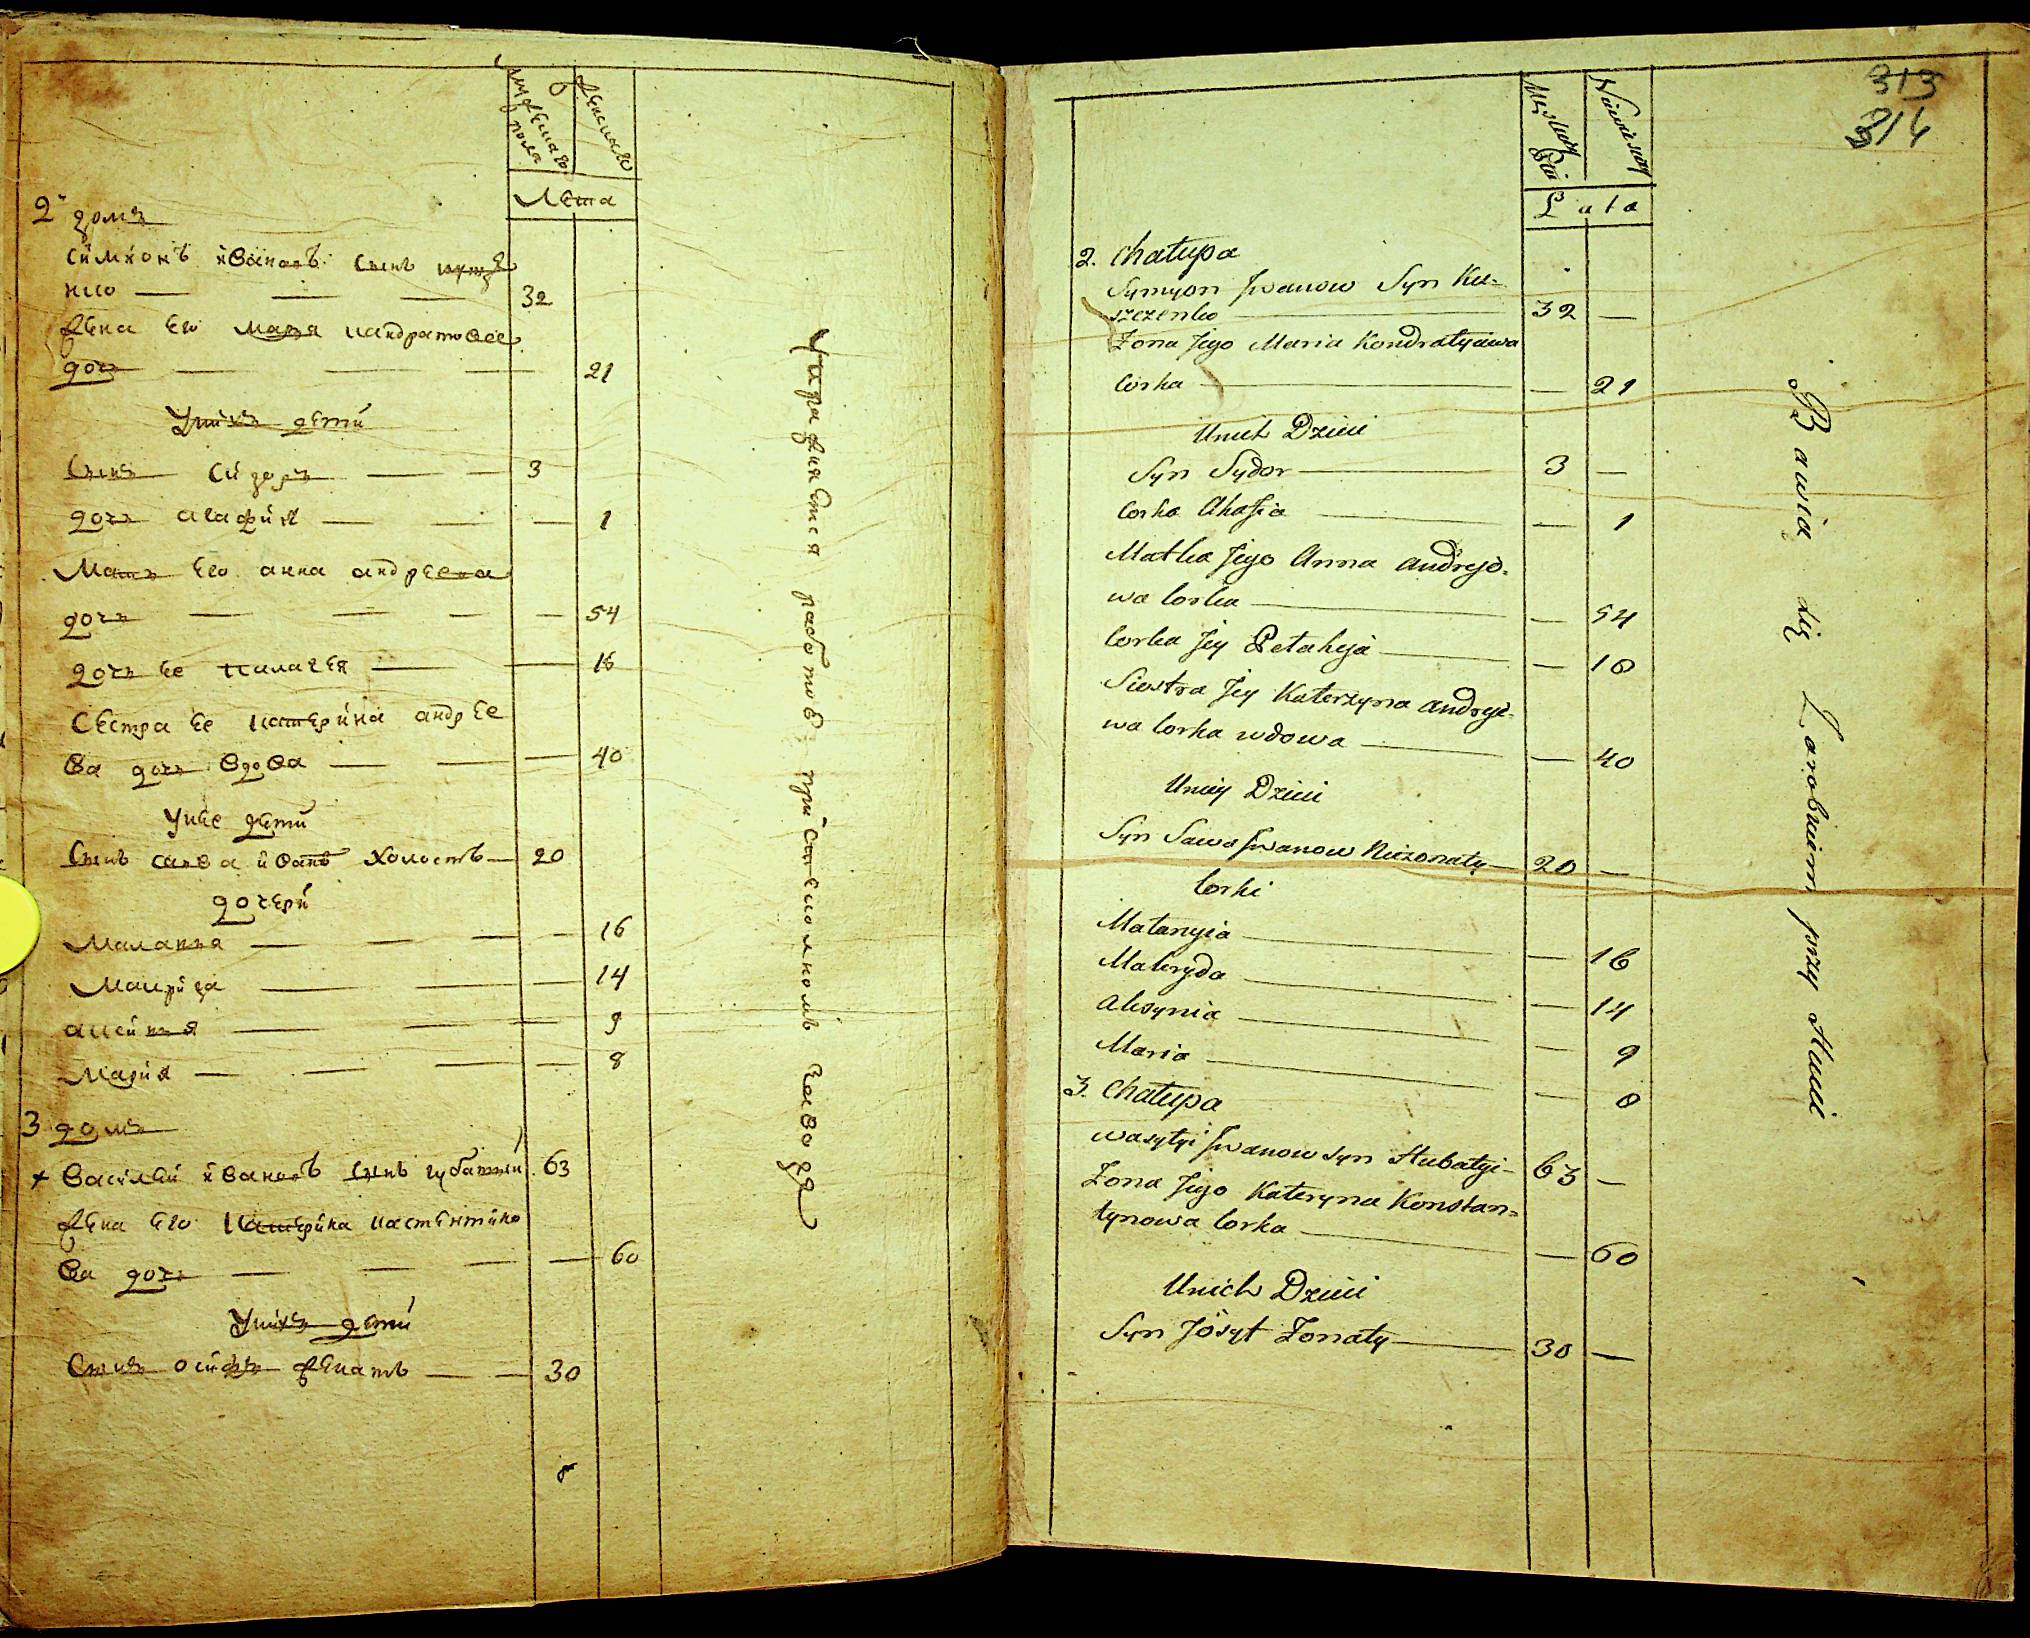 мужеска
пола
женска
Лета
2 домъ
симионъ иванов сынъ куще
нко — — — 32
жена его мария кандратовее
дочь — — — 21
У них дети
Сынъ Сидоръ — — 3
дочь агафия — — — 1
Мать его анна андреева
дочь — — — — 54
дочь ее палагея — — 16
Сестра ее катерина андрее
ва дочь вдова — — — 40
У нее дети
Сынъ савва иванъ холостъ — 20
дочери
Маланья — — — — 16
Макрида — — — 14
аксинья — — — 9
Мария — — — — 8
3 домъ
+ Василий ивановъ сынъ губатый 63
жена его Катерина кастентино
ва дочь — — — — 60
У них дети
Сынъ осифъ женатъ — — 30
работов при стеколномъ заводе
313
314
Męskiey
Płci
Niewiescey
Lata
2. Chałupa
Symyon Jwanow Syn Ku=
szczenko — 32 —
Żona Jego Maria Kondratyiwa
Corka — — 21
Unich Dzieci
Syn Sydor — 3 —
Corka Ahafia — — 1
Matka Jego Anna Andrejo=
wa Corka — — 54
Corka Jey Pełaheja — — 16
Siostra Jey Katerzyna Andrejo=
wa Corka wdowa — — 40
Uniey Dzieci
Syn Sawa Jwanow Nieżonaty — 20 —
Corki
Małanyia — — 16
Makryda — — 14
Aksynia — — 9
Maria — — 8
3. Chałupa
Wasylyi Jwanow syn Hubatyi — 63 —
Żona Jego Kateryna Konstan=
tynowa Corka — — 60
Unich Dzieci
Syn Jósyf Żonaty — 30 —
Bawią się Zarobkiem przy Hucie